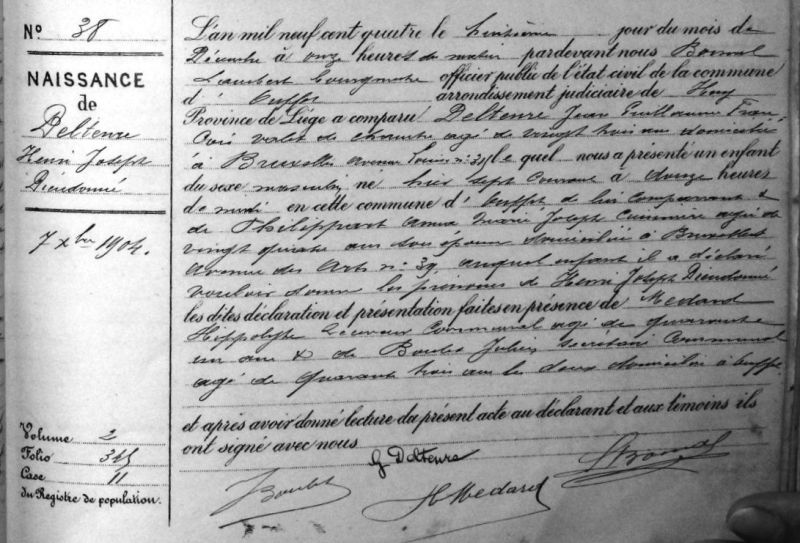 N° 38
NAISSANCE
de
Deltenre
Henri Joseph
Dieudonné
7 Xbre 1904.
Volume 2
Folio 345
Case 11
du Registre de population.
L'an mil neuf cent quatre le huitième jour du mois de
Décembre à onze heures du matin pardevant nous Bonnal
Lambert bourgmestre officier public de l'état civil de la commune
d' Ouffet arrondissement judiciaire de Huy
Province de Liége a comparu Deltenre Jean Guillaume Fran
çois valet de chambre agé de vingt trois ans domicilié
à Bruxelles avenue Louise n° le quel nous a présenté un enfant
du sexe masculin né hier sept courant à douze heures
de midi en cette commune d' Ouffet de lui comparant &
de Philippart Anna Marie Joseph Cuisinière agée de
vingt quatre ans son épouse domiciliée à Bruxelles
Avenue des Arts n° 39, auquel enfant il a déclaré
vouloir donner les prénoms de Henri Joseph Dieudonné
les dites déclaration et présentation faites en présence de Medard
Hippolyte Receveur Communal agé de quarante
un ans & de Boulet Julien Secrétaire Communal
agé de quarante trois ans les deux domiciliés à Ouffet
et après avoir donné lecture du présent acte au déclarant et aux témoins ils
ont signé avec nous
G Deltenre
J Boulet
H Medard
L Bonnal